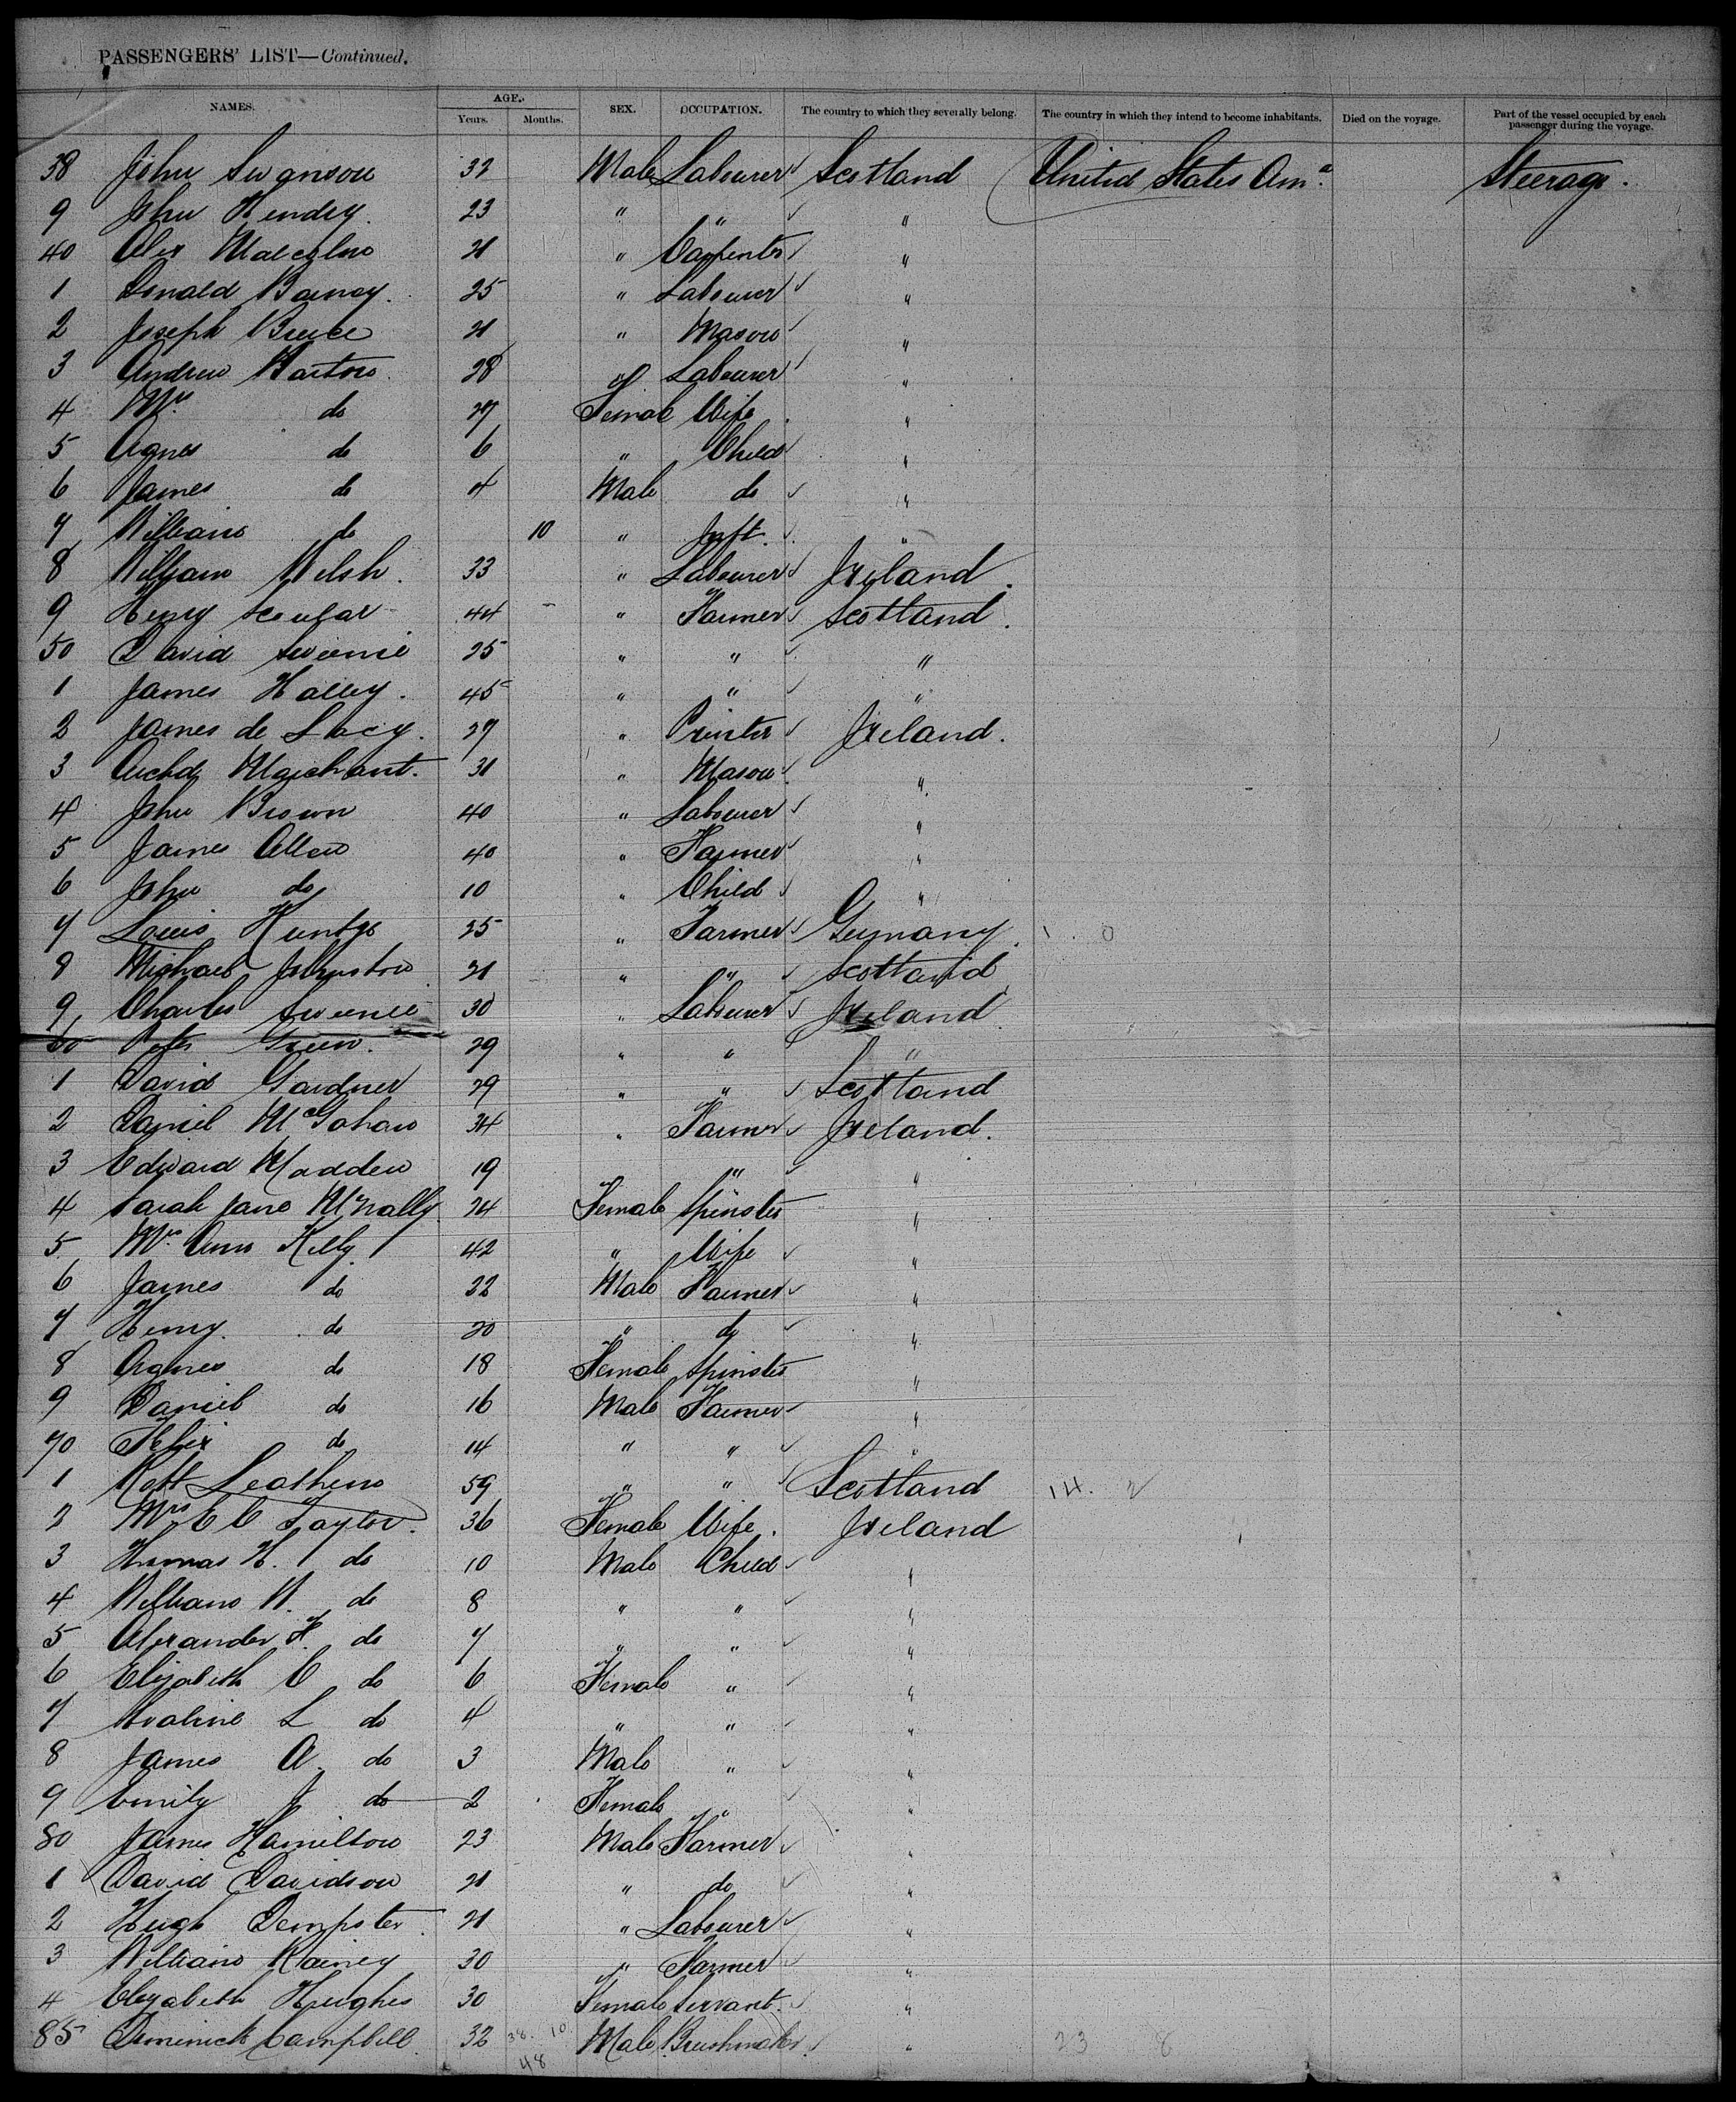 PASSENGERS' LIST—Continued.
NAMES. AGE. Years. Months. SEX. OCCUPATION. The country to which they severally belong. The country in which they intend to become inhabitants. Died on the voyage. Part of the vessel occupied by each passenger during the voyage.
38 John Swanson 32 Male Labourer Scotland United States Am.a Steerage.
9 John Hendry. 23 " " "
40 Alex Malcolm 21 " Carpenter "
1 Donald Barney. 25 " Labourer "
2 Joseph Bruce 21 " Mason "
3 Andrew Barton. 28 " Labourer "
4 Mrs do 27 Female Wife "
5 Agnes do 6 " Child "
6 James do 4 Male do "
7 William do 10 " Inft. "
8 William Welsh. 33 " Labourer Ireland.
9 Henry Scoular 44 " Farmer Scotland.
50 David Sweenie 25 " " "
1 James Halley. 45 " " "
2 James de Lacy. 27 " Printer Ireland.
3 Archd Marchant. 31 " Mason "
4 John Brown 40 " Labourer "
5 James Allen 40 " Farmer "
6 John do 10 " Child "
7 Louis 25 " Farmer Germany. 1. 0
8 Michael Johnston 21 " " Scotland
9 Charles Sweenie 30 " Labourer Ireland
60 Peter Green. 29 " " "
1 David Gardner 29 " " Scotland
2 Daniel McGahan 34 " Farmer Ireland.
3 Edward Madden 19 " "
4 Sarah Jane McNally 24 Female Spinster "
5 Mrs Ann Kelly 42 " Wife "
6 James do 22 Male Farmer "
7 Henry. do 20 " do "
8 Agnes do 18 Female Spinster "
9 Daniel do 16 Male Farmer "
70 Felix do 14 " " "
1 Robt 59 " " Scotland 14. 2
2 Mrs C C Taylor. 36 Female Wife. Ireland
3 Thomas H. do 10 Male Child "
4 William W. do 8 " " "
5 Alexander F. do 7 " " "
6 Elizabeth C do 6 Female " "
7 L do 4 " " "
8 James A. do 3 Male " "
9 Emily J do 2 Female " "
80 James Hamilton 23 Male Farmer "
1 David Davidson 21 " do "
2 Hugh Dempster 21 " Labourer "
3 William Rainey 30 " Farmer "
4 Elizabeth Hughes 30 Female Servant. "
85 Dominick Campbell. 32 38. 10 Male Brushmaker. " 23 8
48